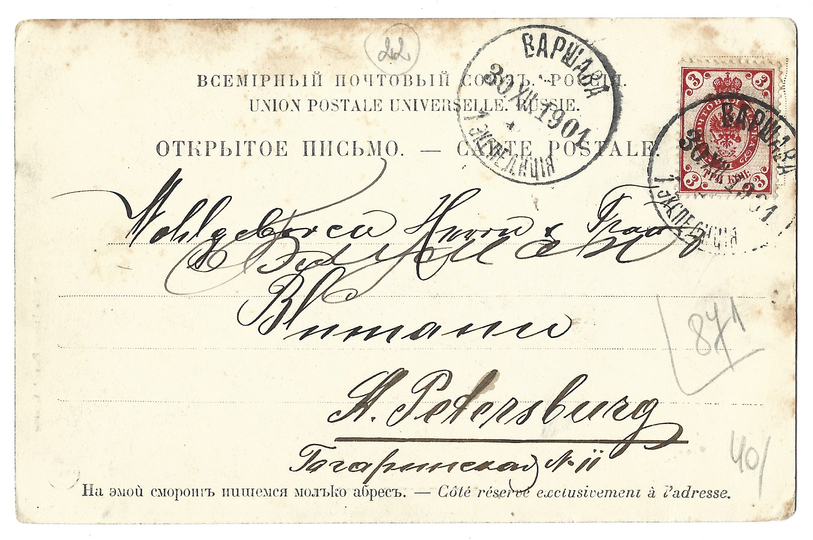 22
ВСЕМІРНЫЙ ПОЧТОВЫЙ СОЮЗЪ. РОССІЯ.
UNION POSTALE UNIVERSELLE. RUSSIE.
ОТКРЫТОЕ ПИСЬМО. — CARTE POSTALE.
ВАРШАВА
30 XII 1901
1 ЭКСПЕДИЦІЯ
3 3
3 3
ВАРШАВА
30 XII 1901
1 ЭКСПЕДИЦІЯ
Wohlgeboren Herrn & Frau
Blumann
871
St. Petersburg
Гагаринская № 11
40/
На этой сторонѣ пишется только адресъ. — Côté réservé exclusivement à l'adresse.